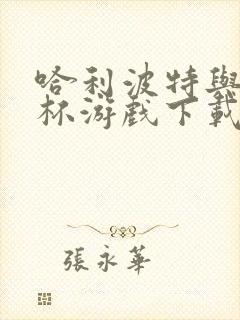 哈利波特與
杯游戲下載
張永華